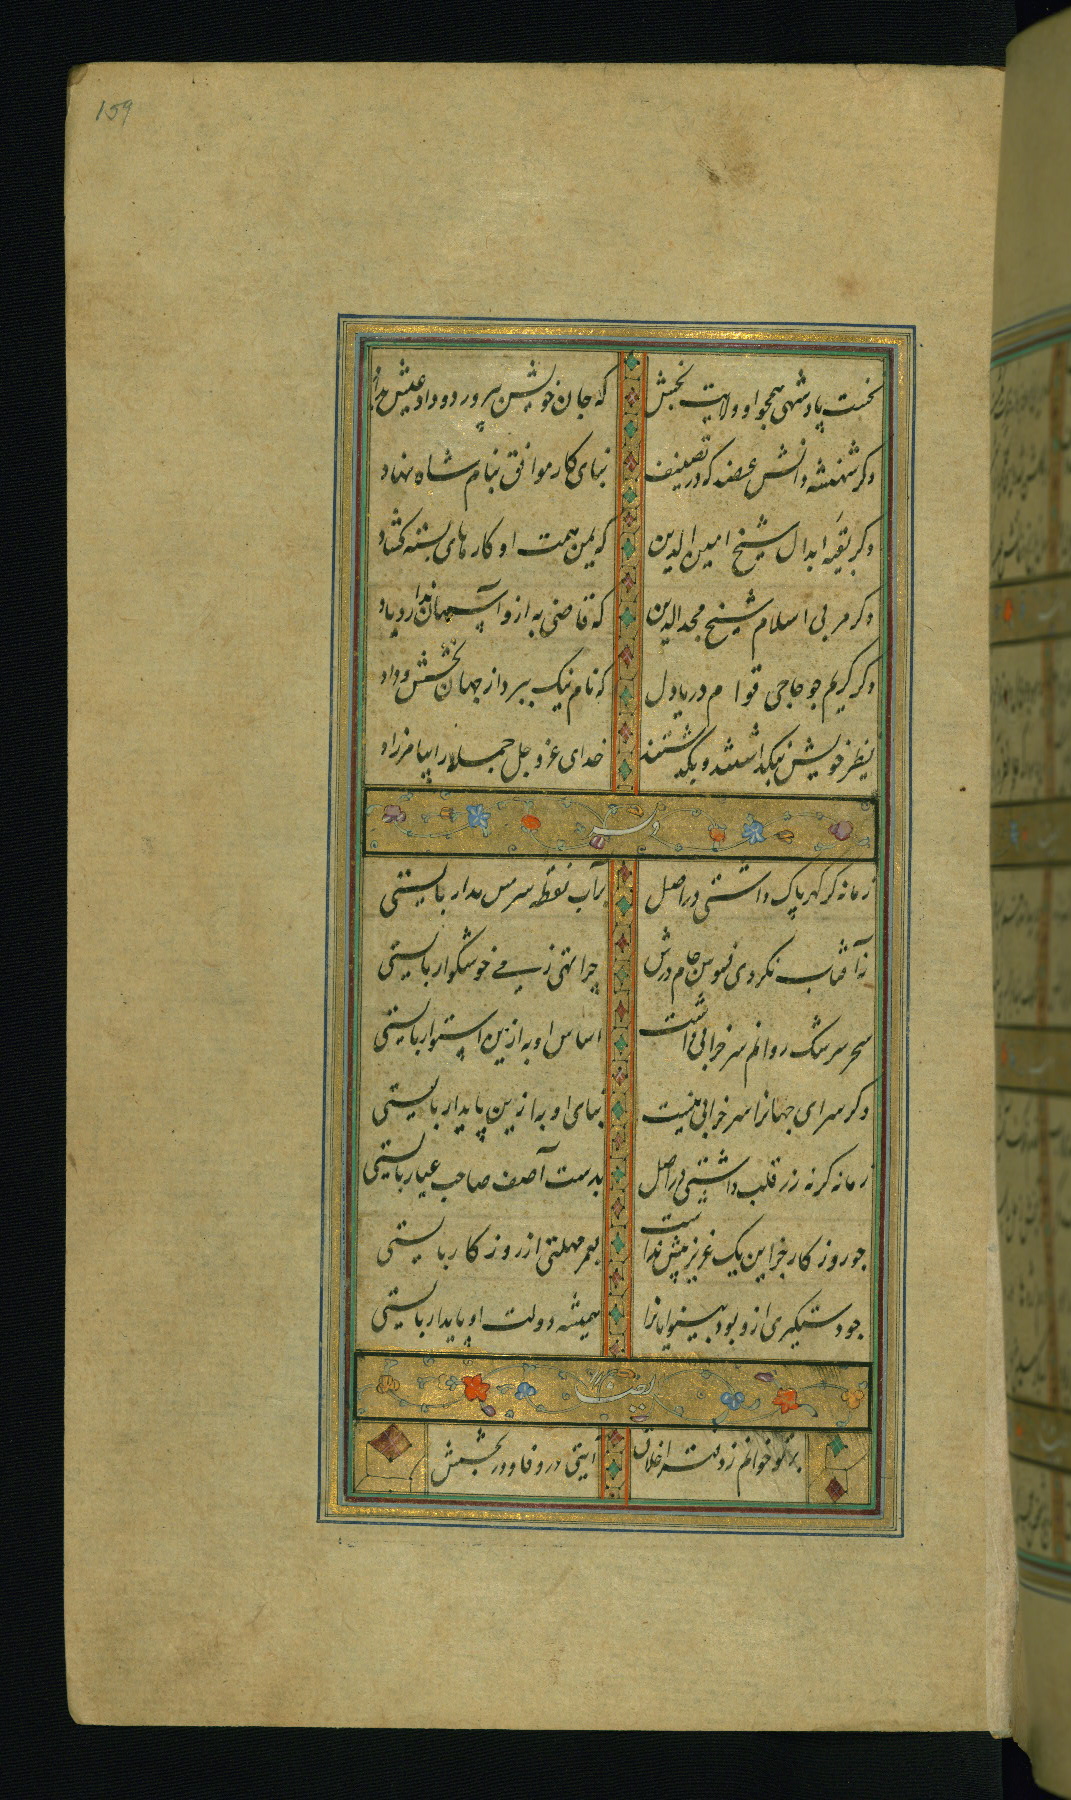 159
نخست پادشهی همچو او ولایت بخش که جان خویش بپرورد و داد عیش بداد
دگر شهنشه دانش عضد که در تصنیف بنای کار موافق بنام شاه نهاد
دگر بقیه ابدال شیخ امین الدین که یمن همت او کارهای بسته گشاد
دگر مربی اسلام شیخ مجد الدین که قاضی به ازو آسمان ندارد یاد
دگر کریم چو حاجی قوام دریادل که نام نیک ببرد از جهان ببخشش و داد
نظیر خویش بنگذاشتند و بگذشتند خدای عز و جل جمله را بیامرزاد
وله
زمانه گر گهر پاک داشتی در اصل بر آب نقطه سرمش مدار بایستی
ز آفتاب نکردی فسوس جام زرش چرا تهی ز می خوشگوار بایستی
سحر سرشک روانم سر خرابی داشت اساس او به ازین استوار بایستی
وگر سرای جهانرا سر خرابی نیست بنای او به ازین پایدار بایستی
زمانه گر نه زر قلب داشتی در اصل بدست آصف صاحب عیار بایستی
چو روزگار جز این یک عزیز بیش نداشت بعمر مهلتی از روزگار بایستی
چو دستگیری ازو بود بینوایانرا همیشه دولت او پایدار بایستی
ایضا
بر تو خوانم ز دفتر اخلاق آیتی در وفا و در بخشش